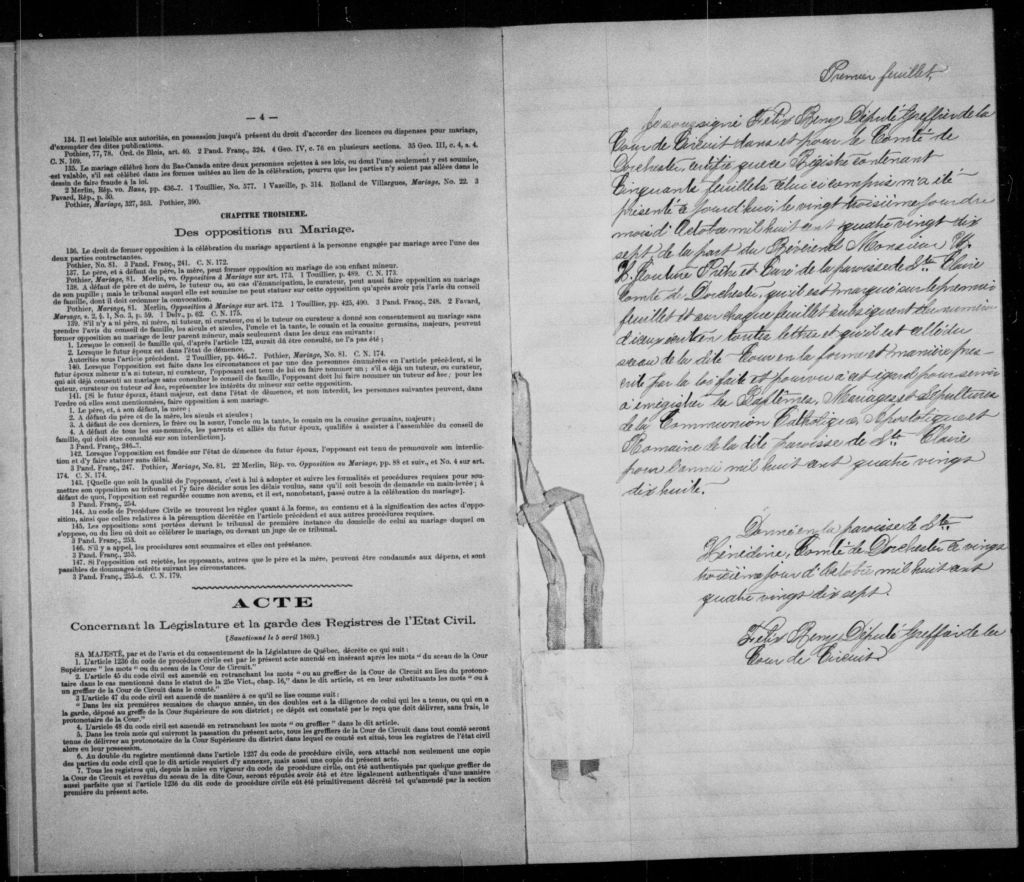 — 4 —
134. Il est loisible aux autorités, en possession jusqu'à présent du droit d'accorder des licences ou dispenses pour mariage,
d'exempter des dites publications.
Pothier, 77, 78. Ord. de Blois, art. 40. 2 Pand. Franç., 324. 4 Geo. IV, c. 76 en plusieurs sections. 35 Geo. III, c. 4, s. 4.
C. N. 169.
135. Le mariage célébré hors du Bas-Canada entre deux personnes sujettes à ses lois, ou dont l'une seulement y est soumise,
est valable, s'il est célébré dans les formes usitées au lieu de la célébration, pourvu que les parties n'y soient pas allées dans le
dessin de faire fraude à la loi.
2 Merlin, Rép. vo. Bans, pp. 436-7. 1 Touillier, No. 577. 1 Vazeille, p. 314. Rolland de Villargues, Mariage, No. 22. 3
Favard, Rép., p. 30.
Pothier, Mariage, 327, 363. Pothier, 390.
CHAPITRE TROISIEME.
Des oppositions au Mariage.
136. Le droit de former opposition à la célébration du mariage appartient à la personne engagée par mariage avec l'une des
deux parties contractantes.
Pothier, No. 81. 3 Pand. Franç., 241. C. N. 172.
137. Le père, et à défaut du père, la mère, peut former opposition au mariage de son enfant mineur.
Pothier, Mariage, 81. Merlin, vo. Opposition à Mariage sur art. 173. 1 Touillier, p. 489. C. N. 173.
138. A défaut de père et de mère, le tuteur ou, au cas d'émancipation, le curateur, peut aussi faire opposition au mariage
de son pupille; mais le tribunal auquel elle est soumise ne peut statuer sur cette opposition qu'après avoir pris l'avis du conseil
de famille, dont il doit ordonner la convocation.
Pothier, Mariage, 81. Merlin, Opposition à Mariage sur art. 172. 1 Touillier, pp. 425, 490. 3 Pand. Franç., 248. 2 Favard,
Mariage, s. 2, § 1, No. 3, p. 59. 1 Delv., p. 62. C. N. 175.
139. S'il n'y a ni père, ni mère, ni tuteur, ni curateur, ou si le tuteur ou curateur a donné son consentement au mariage sans
prendre l'avis du conseil de famille, les aïeuls et aïeules, l'oncle et la tante, le cousin et la cousine germains, majeurs, peuvent
former opposition au mariage de leur parent mineur, mais seulement dans les deux cas suivants:
1. Lorsque le conseil de famille qui, d'après l'article 122, aurait dû être consulté, ne l'a pas été;
2. Lorsque le futur époux est dans l'état de démence.
Autorités sous l'article précédent. 2 Touillier, pp. 446-7. Pothier, Mariage, No. 81. C. N. 174.
140. Lorsque l'opposition est faite dans les circonstances et par une des personnes énumérées en l'article précédent, si le
futur époux mineur n'a ni tuteur, ni curateur, l'opposant est tenu de lui en faire nommer un; s'il a déjà un tuteur, ou curateur,
qui ait déjà consenti au mariage sans consulter le conseil de famille, l'opposant doit lui faire nommer un tuteur ad hoc; pour les
tuteur, curateur ou tuteur ad hoc, représenter les intérêts du mineur sur cette opposition.
141. [Si le futur époux, étant majeur, est dans l'état de démence, et non interdit, les personnes suivantes peuvent, dans
l'ordre où elles sont mentionnées, faire opposition à son mariage.
1. Le père, et, à son défaut, la mère;
2. A défaut du père et de la mère, les aïeuls et aïeules;
3. A défaut de ces derniers, le frère ou la sœur, l'oncle ou la tante, le cousin ou la cousine germains, majeurs;
4. A défaut de tous les sus-nommés, les parents et alliés du futur époux, qualifiés à assister à l'assemblée du conseil de
famille, qui doit être consulté sur son interdiction].
3 Pand. Franç., 246-7.
142. Lorsque l'opposition est fondée sur l'état de démence du futur époux, l'opposant est tenu de promouvoir son interdic-
tion et d'y faire statuer sans délai.
3 Pand. Franç., 247. Pothier, Mariage, No. 81. 22 Merlin, Rép. vo. Opposition au Mariage, pp. 88 et suiv., et No. 4 sur art.
174. C. N. 174.
143. [Quelle que soit la qualité de l'opposant, c'est à lui à adopter et suivre les formalités et procédures requises pour sou-
mettre son opposition au tribunal et l'y faire décider sous les délais voulus, sans qu'il soit besoin de demande en main-levée; à
défaut de quoi, l'opposition est regardée comme non avenu, et il est, nonobstant, passé outre à la célébration du mariage].
3 Pand. Franç., 254.
144. Au code de Procédure Civile se trouvent les règles quant à la forme, au contenu et à la signification des actes d'oppo-
sition, ainsi que celles relatives à la péremption décrétée en l'article précédent et aux autres procédures requises.
145. Les oppositions sont portées devant le tribunal de première instance du domicile de celui au mariage duquel on
s'oppose, ou du lieu où doit se célébrer le mariage, ou devant un juge de ce tribunal.
3 Pand. Franç., 253.
146. S'il y a appel, les procédures sont sommaires et elles ont préséance.
3 Pand. Franç., 253.
147. Si l'opposition est rejetée, les opposants, autres que le père et la mère, peuvent être condamnés aux dépens, et sont
passibles de dommages-intérêts suivant les circonstances.
3 Pand. Franç., 255-6. C. N. 179.
ACTE
Concernant la Législature et la garde des Registres de l'Etat Civil.
[Sanctionné le 5 avril 1869.]
SA MAJESTÉ, par et de l'avis et du consentement de la Législature de Québec, décrète ce qui suit:
1. L'article 1236 du code de procédure civile est par le présent acte amendé en insérant après les mots "du sceau de la Cour
Supérieure" les mots "ou du sceau de la Cour de Circuit."
2. L'article 45 du code civil est amendé en retranchant les mots "ou au greffier de la Cour de Circuit au lieu du protono-
taire dans le cas mentionné dans le statut de la 25e Vict., chap. 16," dans le dit article, et en leur substituants les mots "ou à
un greffier de la Cour de Circuit dans le comté."
3 L'article 47 du code civil est amendé de manière à ce qu'il se lise comme suit:
"Dans les six premières semaines de chaque année, un des doubles est à la diligence de celui qui les a tenus, ou qui en a
la garde, déposé au greffe de la Cour Supérieure de son district; ce dépôt est constaté par le reçu que doit délivrer, sans frais, le
protonotaire de la Cour."
4. L'article 48 du code civil est amendé en retranchant les mots "ou greffier" dans le dit article.
5. Dans les trois mois qui suivront la passation du présent acte, tous les greffiers de la Cour de Circuit dans tout comté seront
tenus de délivrer au protonotaire de la Cour Supérieure du district dans lequel ce comté est situé, tous les registres de l'état civil
alors en leur possession.
6. Au double du registre mentionné dans l'article 1237 du code de procédure civile, sera attaché non seulement une copie
des parties du code civil que le dit article requiert d'y annexer, mais aussi une copie du présent acte.
7. Tous les registres qui, depuis la mise en vigueur du code de procédure civile, ont été authentiqués par quelque greffier de
la Cour de Circuit et revêtus du sceau de la dite Cour, seront réputés avoir été et être légalement authentiqués d'une manière
aussi parfaite que si l'article 1236 du dit code de procédure civile eût été primitivement décrété tel qu'amendé par la section
première du présent acte.
Premier feuillet.
Je soussigné Felix Remy Député Greffier de la
Cour de Circuit dans et pour le Comté de
Dorchester, certifie que ce Registre contenant
Cinquante feuillets celui ci compris m'a été
présenté aujourd'hui, le vingt troisième jour du
mois d'Octobre mil huit cent quatre vingt dix
sept de la part du Révérend Monsieur
Prêtre et Curé de la paroisse de Ste Claire
Comté de Dorchester, qu'il est marqué sur le premier
feuillet et sur chaque feuillet subséquent du numéro
d'iceux écrit en toutes lettres et qu'il est scellé du
sceau de la dite Cour en la forme et manière pres-
crite par la loi fait et pourvu à cet égard pour servir
à enregistrer les Baptêmes, Mariages et Sépultures
de la Communion Catholique, Apostolique et
Romaine de la dite paroisse de Ste Claire
pour l'année mil huit cent quatre vingt
dix huit.
Donné en la paroisse de Ste
Hénédine, Comté de Dorchester ce vingt
troisième jour d'Octobre mil huit cent
quatre vingt dix sept.
Felix Remy Député Greffier de la
Cour de Circuit